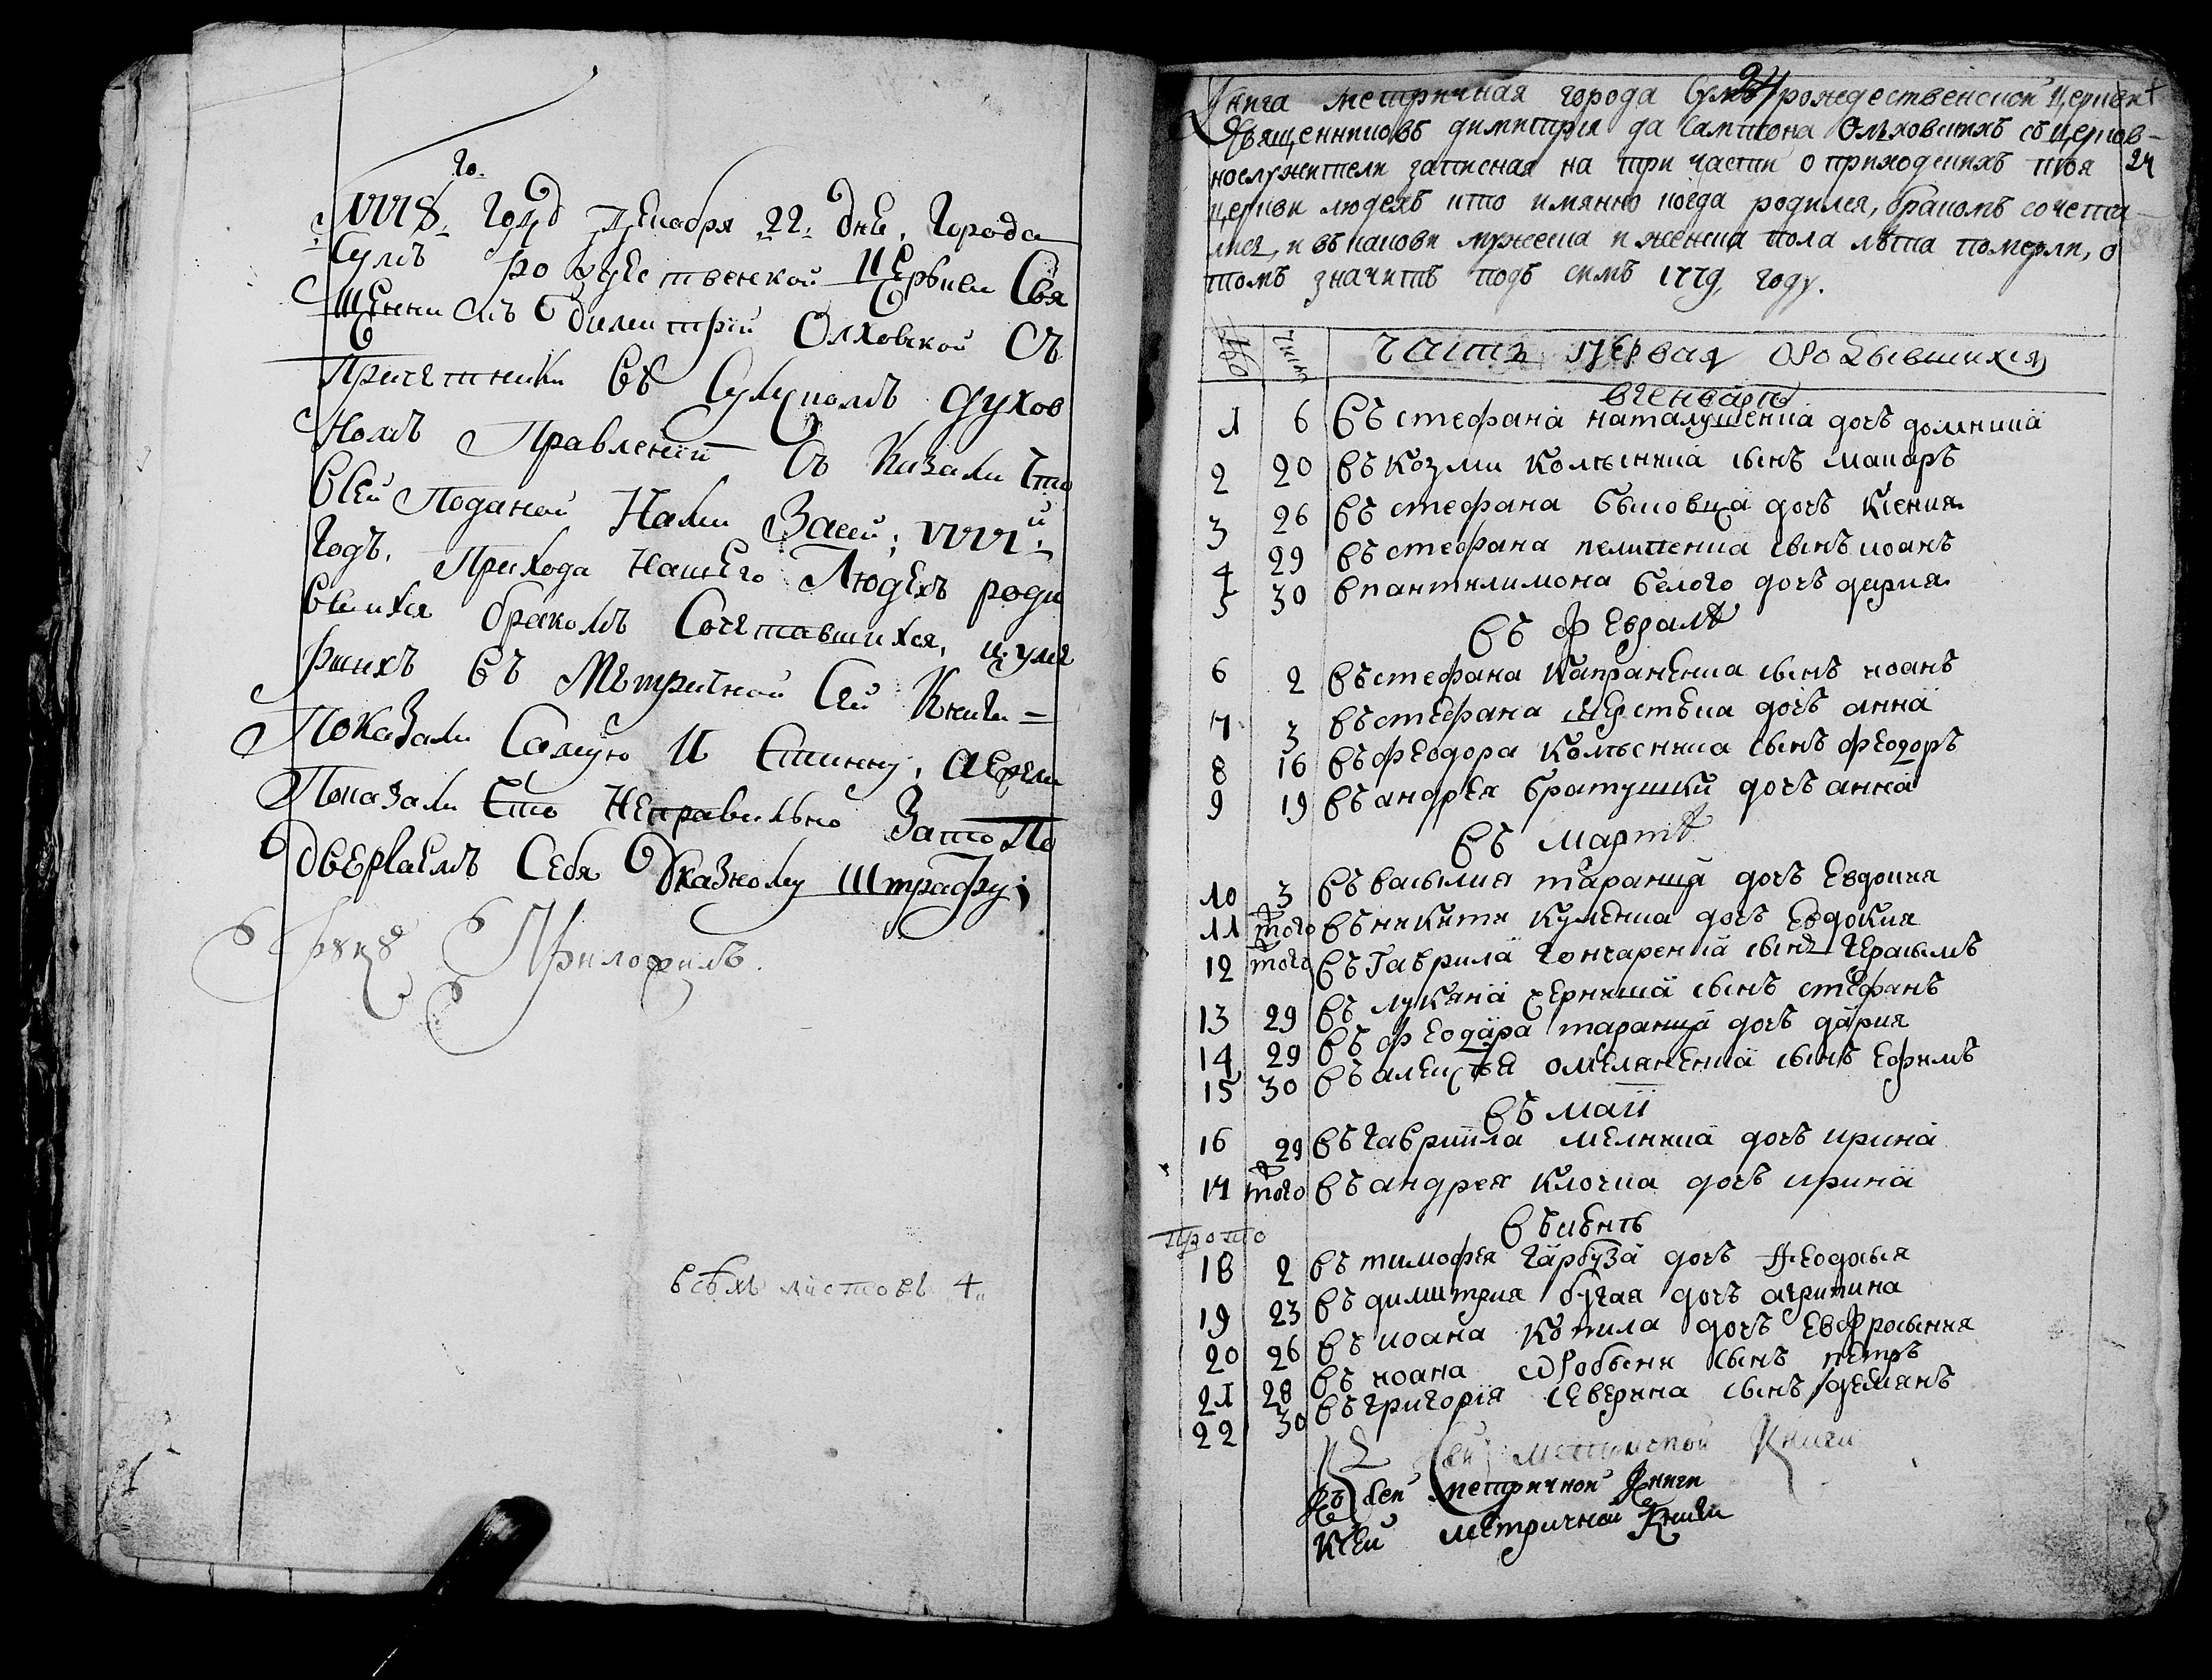 1778 го году Декабря 22 дня, Города
Сумъ рождественской Церькви Свя
щенникъ димитрїй Олховской Съ
Причетники Въ Сумскомъ духов
номъ Правленїи Съ Казали что
Всей Поданой Нами Засей 1778й
Годъ. Прихода нашего Людехъ роди
вшихся бракомъ Сочетавшихся, и уме
ршихъ Въ Метричной Сей Книги =
Показали Самую И Стинну, а ежели
Показали что Неправильно Зато По
двергаемъ Себя Оуказному Штрафу;
всѣхъ листовъ 4
24
Книга метричная города Сумъ рождественской Церкви
Священниковъ димитрия да Сампсона Ольховскихъ съ церков-
нослужители записная на три части о приходскихъ тоя 24
церкви людехъ кто имянно когда родился, бракомъ сочета-
лися, и въ каковы мужеска и женска пола лѣта померли, о
томъ значитъ подъ симъ 1779, году.
число Часть первая Ородывшихся
вГенварѣ
1 6 Въ стефана наталушенка дочъ домникиа
2 20 Въ козми колѣсника сынъ макаръ
3 26 Въ стефана быковца дочъ ксения
4 29 Въ стефана пелипенка сынъ иоанъ
5 30 Впантилимона белого дочъ дария
Въ Февралѣ
6 2 Въ стефана капраненка сынъ иоанъ
7 3 Въ стефана шерстюка дочъ анна
8 16 Въ феодора колѣсника сынъ феодоръ
9 19 Въ андрея братушки дочъ анна
Въ мартѣ
10 3 Въ василия таранца дочъ Евдокия
11 того Въ никити куменка дочъ Евдокия
12 того Въ Гаврила гончаренка сынъ Герасимъ
13 29 Въ лукяна черниша сынъ стефанъ
14 29 Въ феодора таранца дочъ дария
15 30 Въ алексѣя омеляненка сынъ ефимъ
Въ маи
16 29 Въ гавриила мелника дочъ ирина
17 того Въ андрея клочка дочъ ирина
прото
Въ июнѣ
18 2 Въ тимофея гарбуза дочъ феодосия
19 23 Въ димитрия бугая дочъ агрипина
20 26 Въ иоана копила дочъ Евфросиния
21 28 Въ иоана сынъ петръ
22 30 Въ григорїя северина сынъ демянъ
Къ сей метричной Книги
Къ сей метричной Книги
Ксей метричной Книги